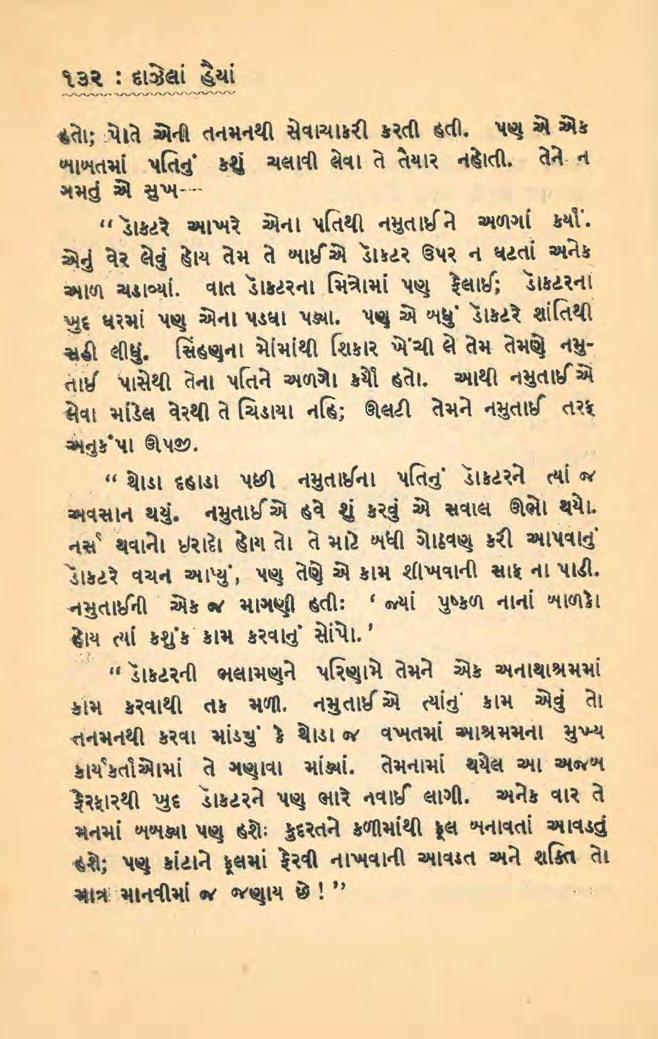 ૧૩૨ : દાઝેલાં હૈયાં
હતો; પોતે એની તનમનથી સેવાચાકરી કરતી હતી. પણ એ એક
બાબતમાં પતિનું કશું ચલાવી લેવા તે તૈયાર નહોતી. તેને ન
ગમતું એ સુખ---
“ ડૉક્ટરે આખરે એના પતિથી નમુતાઈને અળગાં કર્યાં.
એનું વેર લેવું હોય તેમ તે બાઈએ ડૉક્ટર ઉપર ન ઘટતાં અનેક
આળ ચડાવ્યાં. વાત ડૉક્ટરના મિત્રોમાં પણ ફેલાઈ; ડૉક્ટરના
ખુદ ઘરમાં પણ એના પડઘા પડ્યા. પણ એ બધું ડૉક્ટરે શાંતિથી
સહી લીધું. સિંહણના મોંમાંથી શિકાર ખેંચી લે તેમ તેમણે નમુ-
તાઈ પાસેથી તેના પતિને અળગો કર્યો હતો. આથી નમુતાઈએ
લેવા માંડેલ વેરથી તે ચિડાયા નહિ; ઊલટી તેમને નમુતાઈ તરફ
અનુકંપા ઊપજી.
“ થોડા દહાડા પછી નમુતાઈના પતિનું ડૉક્ટરને ત્યાં જ
અવસાન થયું. નમુતાઈએ હવે શું કરવું એ સવાલ ઊભો થયો.
નર્સ થવાનો ઇરાદો હોય તો તે માટે બધી ગોઠવણ કરી આપવાનું
ડૉક્ટરે વચન આપ્યું, પણ તેણે એ કામ શીખવાની સાફ ના પાડી.
નમુતાઈની એક જ માગણી હતીઃ ‘ જ્યાં પુષ્કળ નાનાં બાળકો
હોય ત્યાં કશુંક કામ કરવાનું સોંપો. ’
“ ડૉક્ટરની ભલામણને પરિણામે તેમને એક અનાથાશ્રમમાં
કામ કરવાથી તક મળી. નમુતાઈએ ત્યાંનું કામ એવું તો
તનમનથી કરવા માંડ્યું કે થોડા જ વખતમાં આશ્રમમના મુખ્ય
કાર્યકર્તાઓમાં તે ગણાવા માંડ્યાં. તેમનામાં થયેલ આ અજબ
ફેરફારથી ખુદ ડૉક્ટરને પણ ભારે નવાઈ લાગી. અનેક વાર તે
મનમાં બબડ્યા પણ હશેઃ કુદરતને કળીમાંથી ફૂલ બનાવતાં આવડતું
હશે; પણ કાંટાને ફૂલમાં ફેરવી નાખવાની આવડત અને શક્તિ તો
માત્ર માનવીમાં જ જણાય છે ! ”